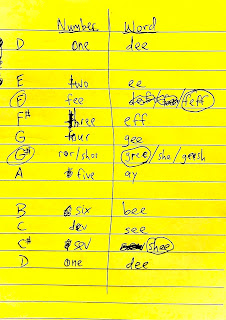 Number Word
D one dee
E two ee
F fee feff
F# three eff
G four gee
G# ror/shor gree/she/geesh
A five ay
B six bee
C dev see
C# sev shee
D one dee